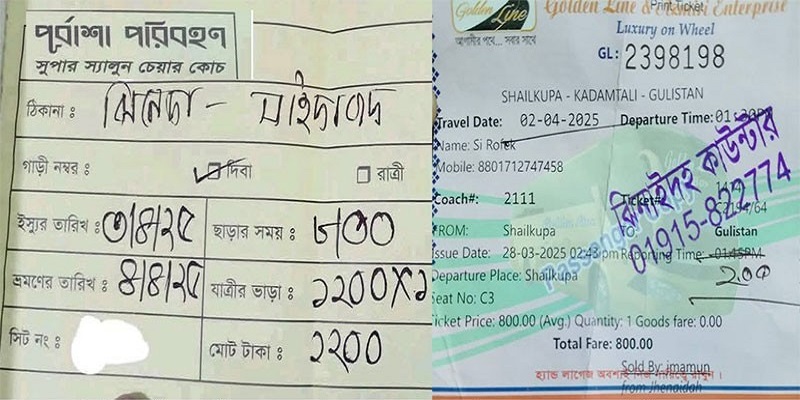 পূর্বাশা পরিবহণ
সুপার স্যালুন চেয়ার কোচ
ঠিকানা :
গাড়ী নম্বর : দিবা রাত্রী
ইস্যুর তারিখ : ৩/৪/২৫ ছাড়ার সময় : ৮/০০
ভ্রমণের তারিখ : ৪/৪/২৫ যাত্রীর ভাড়া : ১২০০X১
সিট নং : মোট টাকা : ১২০০
Print Ticket
Golden Line
Golden Line & Enterprise
আগামীর পথে... সবার সাথে
Luxury on Wheel
GL: 2398198
SHAILKUPA - KADAMTALI - GULISTAN
Travel Date: 02-04-2025 Departure Time:
Name: Si Rofek
Mobile: 8801712747458
Coach#: 2111 Ticket#:
FROM: Shailkupa TO: Gulistan
Issue Date: 28-03-2025 02:43 pm Reporting Time: 01:45PM
Departure Place: Shailkupa
২০০
Seat No: C3
Ticket Price: 800.00 (Avg.) Quantity: 1 Goods fare: 0.00
Total Fare: 800.00
Sold By: imamun
from Jhenaidah
ঝিনাইদহ কাউন্টার
01915-822774